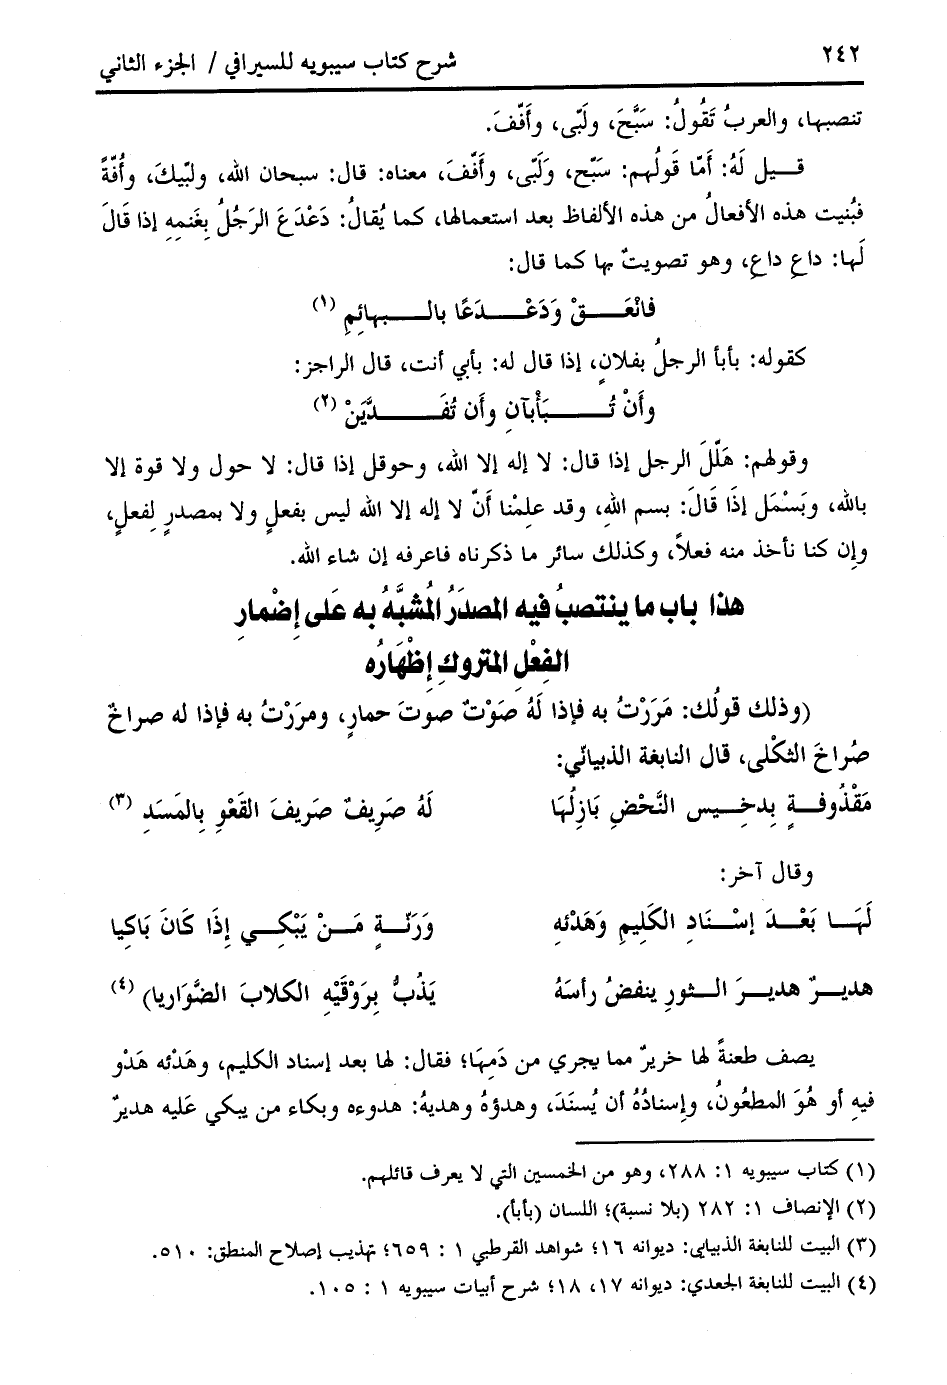 ٢٤٢
شرح كتاب سيبويه للسيرافي / الجزء الثاني
تنصبها، والعربُ تَقُولُ: سَبَّحَ، ولَبّى، وأَفّفَ.
قيل لَهُ: أَمّا قَولُهم: سَبّح، وَلَبّى، وأَفّفَ، معناه: قال: سبحان الله، ولبّيكَ، وأُفّةً
فبُنيت هذه الأفعالُ من هذه الألفاظ بعد استعمالها، كما يُقالُ: دَعْدَعَ الرَجُلُ بِغَنمِهِ إذا قَالَ
لَها: داعِ داعِ، وهو تصويتٌ بها كما قال:
فانْعَقْ وَدَعْدَعًا بالبهائِمِ (١)
كقوله: بأبأ الرجلُ بفلانٍ، إذا قال له: بأبي أنت، قال الراجز:
وأَنْ تُبَأْبآنِ وأَن تُفَدَّيَنْ (٢)
وقولهم: هَلّلَ الرجل إذا قال: لا إله إلا الله، وحوقل إذا قال: لا حول ولا قوة إلا
بالله، وبَسْمَل إذَا قَالَ: بسم اللهِ، وقد علِمْنا أَنّ لا إله إلا الله ليس بفعلٍ ولا بمصدرٍ لِفعلٍ،
وإن كنا نأخذ منه فعلاً، وكذلك سائر ما ذكرناه فاعرفه إن شاء الله.
هذا باب ما ينتصبُ فيه المصدَرُ المُشبَّهُ به عَلى إضْمارِ
الفِعْلِ المتروكِ إِظْهَارُه
(وذلك قولُك: مَرَرْتُ به فإذا لَهُ صَوْتٌ صوتَ حمارٍ، ومرَرْتُ به فإذا له صراخٌ
صُراخَ الثكْلى، قال النابغة الذبيانّي:
مَقْذُوفةٍ بِدخِيس النَّحْضِ بَازِلُها لَهُ صَرِيفٌ صَرِيفَ القَعْوِ بِالمَسَدِ (٣)
وقال آخر:
لَهَا بَعْدَ إسْنَادِ الكَلِيمِ وَهَدْئهِ وَرَنّةٍ مَنْ يَبْكِي إِذَا كَانَ بَاكيا
هديرٌ هديرَ الثورِ ينفضُ رأسَهُ يَذُبُّ بِرَوْقَيْهِ الكلابَ الضَّوَاريا) (٤)
يصف طعنةً لها خريرٌ مما يجري من دَمِهَا؛ فقال: لها بعد إسناد الكليم، وهَدْئه هَدْو
فيهِ أو هُوَ المطعُونُ، وإسنادُهُ أن يُسنَدَ، وهدؤهُ وهديهُ: هدوءه وبكاء من يبكي عَليه هديرٌ
(١) كتاب سيبويه ١: ٢٨٨، وهو من الخمسين التي لا يعرف قائلهم.
(٢) الإنصاف ١: ٢٨٢ (بلا نسبة)؛ اللسان (بأبأ).
(٣) البيت للنابغة الذبيابي: ديوانه ١٦؛ شواهد القرطبي ١ : ٦٥٩؛ تهذيب إصلاح المنطق: ٥١٠.
(٤) البيت للنابغة الجعدي: ديوانه ١٧، ١٨؛ شرح أبيات سيبويه ١ : ١٠٥.